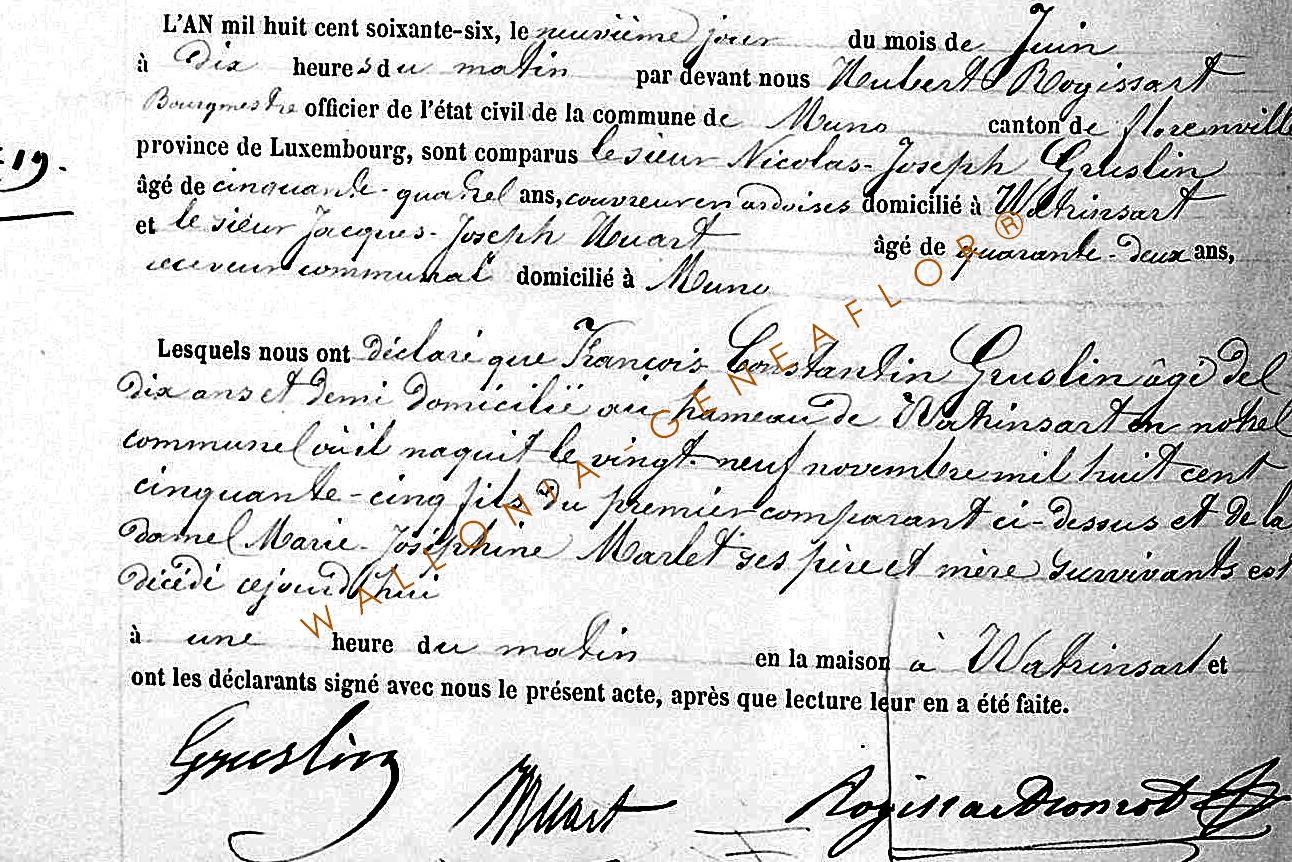 L'AN mil huit cent soixante-six, le neuvième jour du mois de Juin
à Dix heures du matin par devant nous Hubert Rogissart
Bourgmestre officier de l'état civil de la commune de Muno canton de florenville
province de Luxembourg, sont comparus le sieur Nicolas-Joseph Gruslin
19.
âgé de cinquante-quatre ans, couvreur en ardoises domicilié à Watrinsart
et le sieur Jacques-Joseph Huart âgé de quarante-deux ans,
receveur communal domicilié à Muno
Lesquels nous ont déclaré que François Constantin Gruslin âgé de
dix ans et demi domicilié au hameau de Watrinsart en notre
commune où il naquit le vingt-neuf novembre mil huit cent
cinquante-cinq fils du premier comparant ci-dessus et de la
dame Marie-Joséphine Marlet ses père et mère survivants est
décédé cejourd'hui
à une heure du matin en la maison à Watrinsart et
ont les déclarants signé avec nous le présent acte, après que lecture leur en a été faite.
Gruslin Huart
WALLONIA-GENEAFLOR®